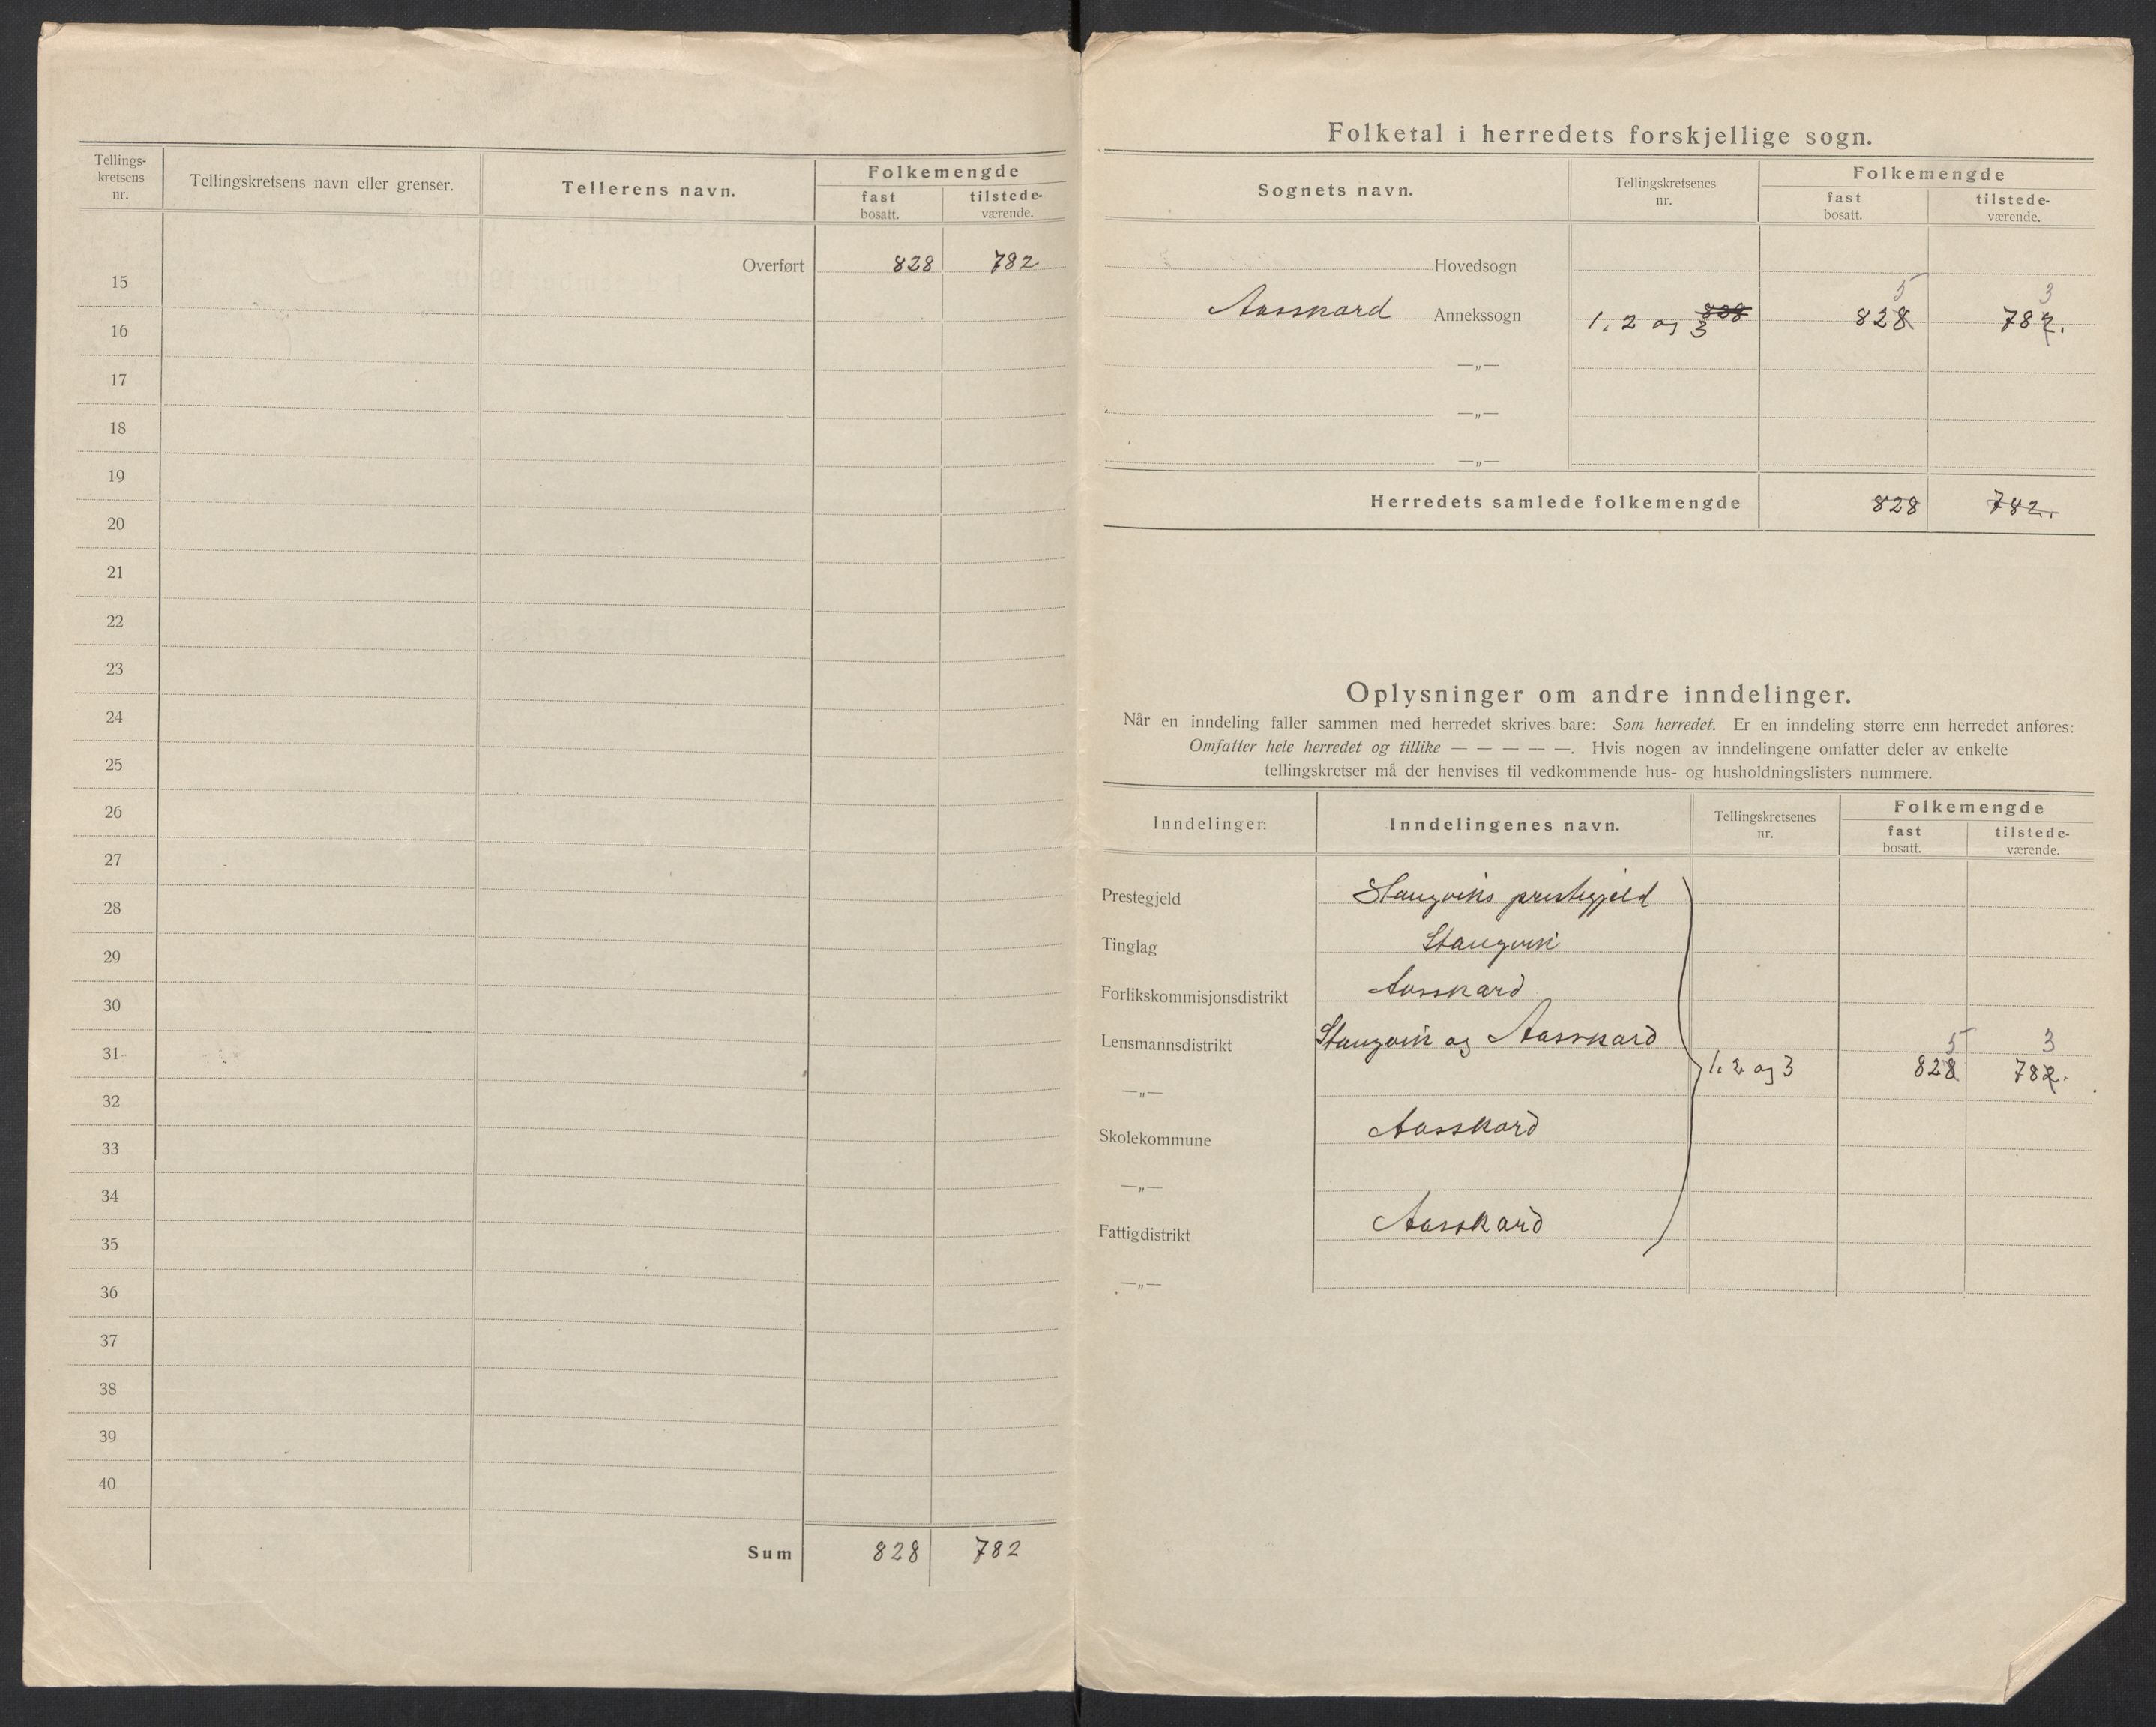 Tellings-
kretsens
nr.
Tellingskretsens navn eller grenser.
Tellerens navn.
Folkemengde
fast
bosatt.
tilstede-
værende.
Overført 828 782
15
16
17
18
19
20
21
22
23
24
25
26
27
28
29
30
31
32
33
34
35
36
37
38
39
40
Sum 828 782
Folketal i herredets forskjellige sogn.
Sognets navn.
Tellingskretsenes
nr.
Folkemengde
fast
bosatt.
tilstede-
værende.
Hovedsogn
5 3
Aasskard Annekssogn 1, 2 og 3 828 782.
—„—
—„—
—„—
Herredets samlede folkemengde 828 782.
Oplysninger om andre inndelinger.
Når en inndeling faller sammen med herredet skrives bare: Som herredet. Er en inndeling større enn herredet anføres:
Omfatter hele herredet og tillike — — — — —. Hvis nogen av inndelingene omfatter deler av enkelte
tellingskretser må der henvises til vedkommende hus- og husholdningslisters nummere.
Inndelinger.
Inndelingenes navn.
Tellingskretsenes
nr.
Folkemengde
fast
bosatt.
tilstede-
værende.
Prestegjeld Stangviks prestegjeld
Tinglag Stangvik
Forlikskommisjonsdistrikt Aasskard
Lensmannsdistrikt Stangvik og Aasskard 5 3
—„— 1, 2 og 3 828 782.
Skolekommune Aasskard
—„—
Fattigdistrikt Aasskard
—„—